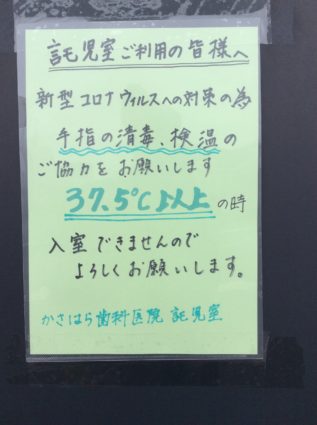 託児室ご利用の皆様へ
新型コロナウィルスへの対策の為
手指の消毒、検温の
ご協力をお願いします
37.5℃以上の時
入室できませんので
よろしくお願いします。
かさはら歯科医院 託児室